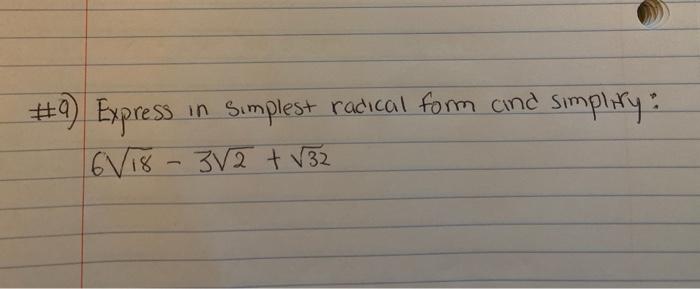 #9) Express in simplest radical form and simplify:
6√18 - 3√2 + √32